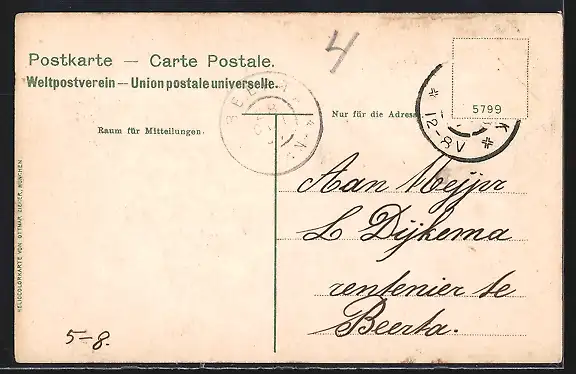 Postkarte — Carte Postale.
Weltpostverein — Union postale universelle.
4
BEERTA
5799
12-8V
K
Nur für die Adresse
Raum für Mitteilungen.
Aan Mejjer
L Dijkema
rentenier te
Beerta.
5-8.
HELIOCOLORKARTE VON OTTMAR ZIEHER, MÜNCHEN